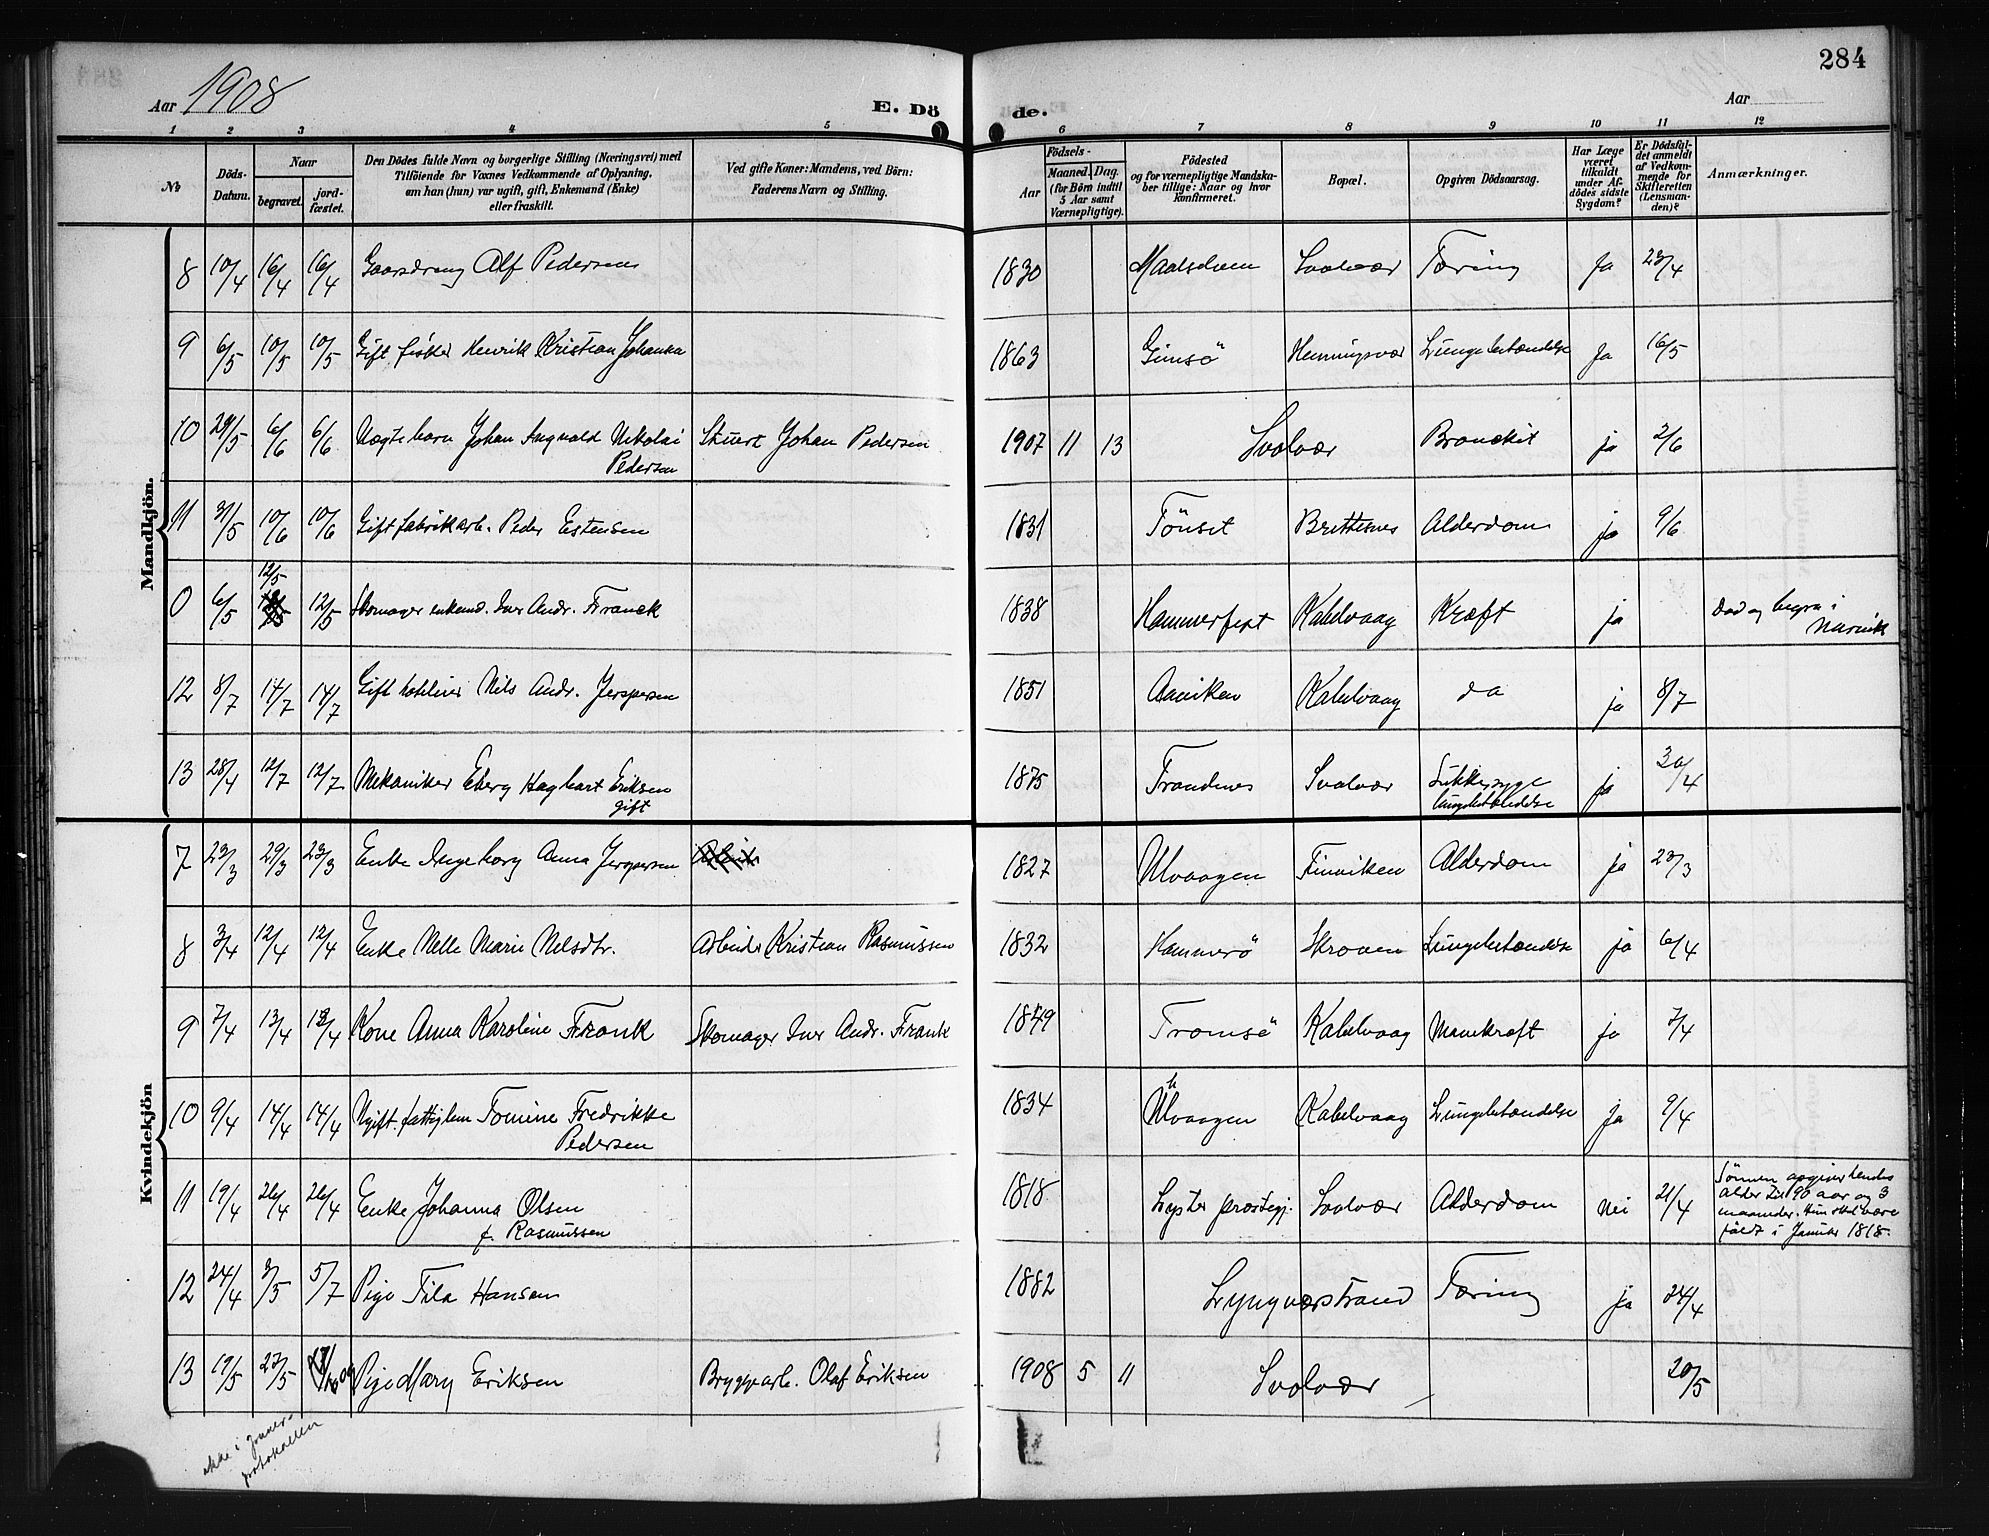 284
Aar 1908
E. Dö
de.
Aar
1 2 3 4 5 6 7 8 9 10 11 12
No
Döds-Datum.
Naar
begravet.
jord-fæstet.
Den Dödes fulde Navn og borgerlige Stilling (Næringsvei) med
Tilföiende for Voxnes Vedkommende af Oplysning,
om han (hun) var ugift, gift, Enkemand (Enke)
eller fraskilt.
Ved gifte Koner: Mandens, ved Börn:
Faderens Navn og Stilling.
Födsels-
Aar
Maaned. Dag.
(for Börn indtil
5 Aar samt
Værnepligtige).
Födested
og for værnepligtige Mandska-
ber tillige: Naar og hvor
konfirmeret.
Bopæl.
Opgiven Dödsaarsag.
Har Læge
været
tilkaldt
under Af-
dödes sidste
Sygdom?
Er Dödsfal-
det anmeldt
af Vedkom-
mende for
Skifteretten
(Lensman-
den)?
Anmærkninger.
Mandkjön.
8 10/4 16/4 16/4 Gaardsdreng Alf Pedersen 1830 Maalselven Svolvær Tæring Ja 23/4
9 6/5 10/5 10/5 Gift fisker Henrik Kristian Johanka 1863 Gimsö Henningsvær Lungebetændelse Ja 16/5
10 29/5 6/6 6/6 Ægte barn Johan Angvald Nikolai Stuert Johan Pedersen 1907 11 13 Svolvær Bronckit ja 2/6
Pedersen
11 31/5 10/6 10/6 Gift fabrikarb. Peder Estensen 1831 Tönset Brettesnes Alderdom ja 9/6
12/5
0 6/5 12/5 Skomager enkemd. Iver Andr. Franck 1838 Hammerfest Kabelvaag Kræft ja Död og begra i
Narvik
12 8/7 14/7 14/7 Gift Nils Andr. Jerspersen 1851 Kabelvaag do ja 8/7
13 28/4 12/7 12/7 Mekaniker Eberg Hagbart Eriksen 1875 Trondenes Svolvær Sukkersyge ja 30/4
gift lungebetændelse
Kvindekjön
7 23/3 29/3 23/3 Enke Ingeborg Anna Jerspersen 1827 Ulvaagen Finviken Alderdom ja 23/3
8 3/4 12/4 12/4 Enke Nelle Marie Nilsdtr. Arbeider Kristian Rasmussen 1832 Hammerö Skroven Lungebetændelse ja 6/4
9 7/4 13/4 13/4 Kone Anna Karoline Frank Skomager Iver Andr. Frank 1849 Tromsö Kabelvaag Mavekræft ja 7/4
10 9/4 14/4 14/4 Ugift. fattiglem Tomine Fredrikke 1834 Ulvaagen Kabelvaag Lungebetændelse Ja 9/4
Pedersen
11 19/4 26/4 26/4 Enke Johanna Olsen 1818 Lyster prestegj. Svolvær Alderdom Nei 21/4 Sönnen opgiver hendes
f. Rasmussen alder til 90 aar og 3
maaneder. Hun skal være
födt i Januar 1818.
12 24/4 3/5 5/7 Pige Tila Hansen 1882 Lyngværstrand Tæring ja 24/4
13 19/5 23/5 Pige Mary Eriksen Bryggearb. Olaf Eriksen 1908 5 11 Svolvær 20/5
ikke i
protokollen